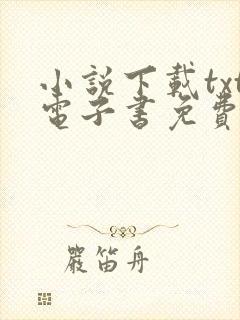 小說下載txt
電子書免費
嚴笛舟